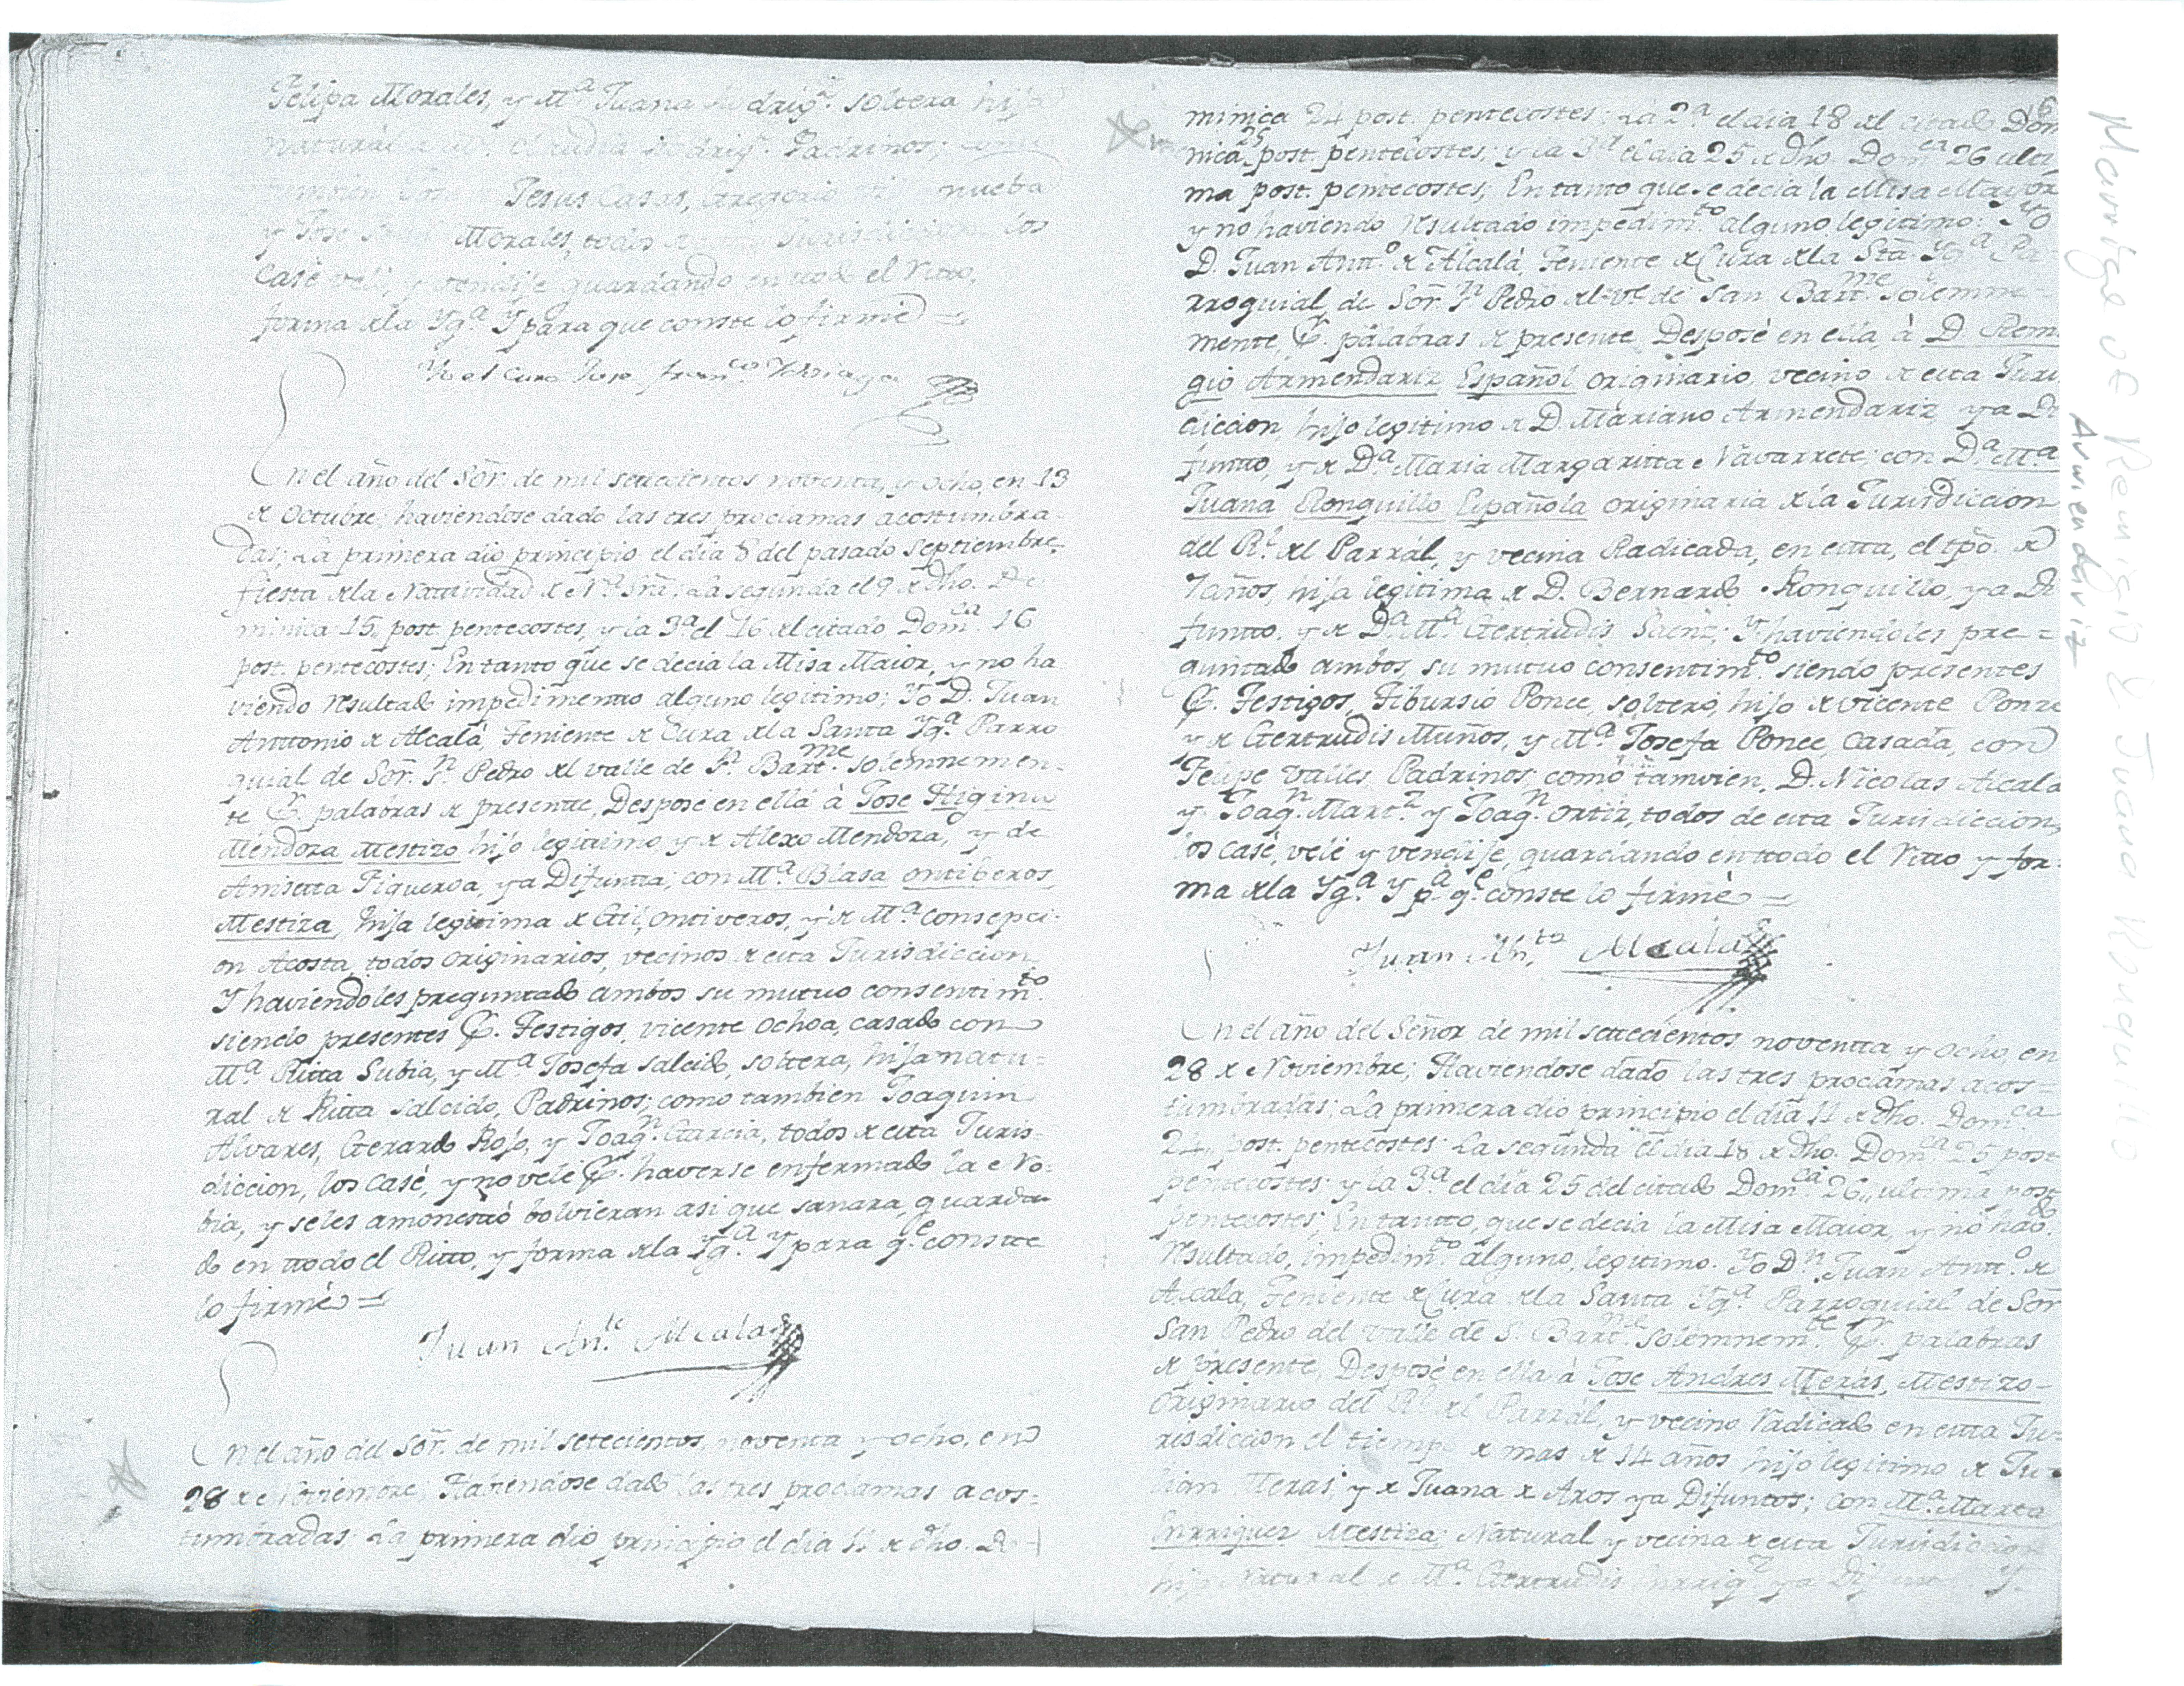 Felipa Morales, y Mª Juana Rodrigz. soltera hija
natural Mª. Claudia Rodrigz. Padrinos; como
Jesus Casas, Gregorio
y Jose Morales, todos Jurisdiccion los
Casè velè, y vendije guardando en todo el Ritto,
forma xla Ygª. Y para que conste lo firmè =
Yo el Cura Jose Franco.
En el año del Sor. de mil setecientos noventa, y ocho, en 13
x Octubre; haviendose dado las tres proclamas acostumbra-
das; La primera dio principio el dia 8 del pasado Septiembre,
fiesta xla Natividad x Nª. Srã; La segunda el 9 x dho. Do
minica 15,, post. pentecostes, y la 3ª. el 16 xl citado, Domca. 16
post. pentecostes; En tanto que se decia la Misa Maior, y no ha
viendo resultado impedimento alguno legitimo; Yo D. Juan
Anttonio x Alcalà, Teniente x Cura xla Santa Ygª. Parro
quial de Sor. Sn. Pedro xl valle de Sn. Bartme. solemnemen-
te P. palabras x presente, Desposè en ella à Jose Higinio
Mendoza Mestizo hijo legitimo, y x Alexo Mendoza, y de
Anisetta Figueroa, ya Difunta; con Mª. Blasa ontiberos,
Mestiza, hija legitima x Gil, ontiveros, y x Mª. Consepci-
on Acosta, todos originarios, vecinos x esta Jurisdiccion
Y haviendoles preguntado ambos su mutuo consentimto.
siendo presentes P. Testigos, vicente ochoa, casado con
Mª. Ritta Subia, y Mª. Josefa salcido, soltera, hija natu-
ral x Ritta salcido, Padrinos; como tambien Joaquin
Alvares, Gerardo Rojo, y Joaqn. Garcia, todos x esta Juris-
diccion, los casè, y no velè P. haverse enfermado la No-
bia, y seles amonestò bolvieran asi que sanara, guardan
do en ttodo el Ritto, y forma xla Ygª. Y para qe. constte
lo firmè =
Juan Anto. Alcala
En el año del Sor. de mil setecientos, noventa y ocho, en
28 x Noviembre; Haviendose dado las tres proclamas acos-
tumbradas; La primera dio principio el dia 11 x dho. Do-
minica 24 post. pentecostes; La 2ª el dia 18 xl citado Domi
nica 25 post. pentecostes; y la 3ª el dia 25 x dho. Domca. 26 ulti
ma post. pentecostes; En tanto que se decia la Misa Mayor
y no haviendo resultado impedimto. alguno legitimo; Yo
D. Juan Antto. x Alcalà, Teniente x Cura xla Sta. Ygª. Pa-
rroquial, de Sor. Sn. Pedro xl ve. de San Bartme. solemne-
mente, P. palabras x presente, Desposè en ella, à D. Remi
gio Armendariz Español originario, vecino x esta Juris
diccion, hijo legitimo x D. Mariano Armendariz, ya Di
funto, y x Dª. Maria Margaritta Navarrete; con Dª. Mª
Juana Ronquillo Española originaria xla Jurisdiccion
del Rl. xl Parràl, y vecina Radicada, en esta, el tpo. x
7 años, hija legitima x D. Bernardo Ronquillo, ya Di
funto, y x Dª. Mª Gertrudis Saenz; Y haviendoles pre-
guntado ambos, su mutuo consentimto. siendo presentes
P. Testigos, Tibursio Ponce, soltero, hijo x vicente Ponze
y x Gertrudis Muños, y Mª. Josefa Ponce, Casada, con
Felipe valles, Padrinos; como tamvien, D. Nicolas Alcala
y Joaqn. Martz. y Joaqn. Ortiz, todos de esta Jurisdiccion,
los casè, velè y vendije, guardando en ttodo el Ritto y for-
ma xla Ygª. Y pª. qe. conste lo firmè =
Juan Anto. Alcala
En el año del Señor de mil setecientos, noventta y ocho, en
28 x Noviembre; Haviendose dado las tres proclamas acos-
tumbradas; La primera dio principio el dia 11 x dho. Domca.
24,, post. pentecostes: La segunda el dia 18 x dho. Domca. 25 post
pentecostes: y la 3ª. el dia 25 del citado Domca. 26,, ultima post
pentecostes; En tantto, que se decia la Misa Maior, y no havdo.
resultado, impedimto. alguno, legitimo. Yo Dn. Juan Antto. x
Alcala, Teniente x Cura xla Santa Ygª. Parroquial de Sor
San Pedro del valle de S. Bartme. solemnemte. P. palabras
x presente, Desposè en ella à Jose Andres Meràs, Mestizo
originario del Rl. xl Parràl, y vecino Radicado en esta Ju-
risdiccion el tiempo x mas x 14 años hijo legitimo x Ju-
lian Meras, y x Juana x Aros ya Difuntos; con Mª. Marta
Enrriquez Mestiza, Natural y vecina x esta Jurisdiccion
hija Natural x Mª. Gertrudis Enrriqz ya Difunt Y
Marriage of Remigio & Juana Ronquillo
Armendariz